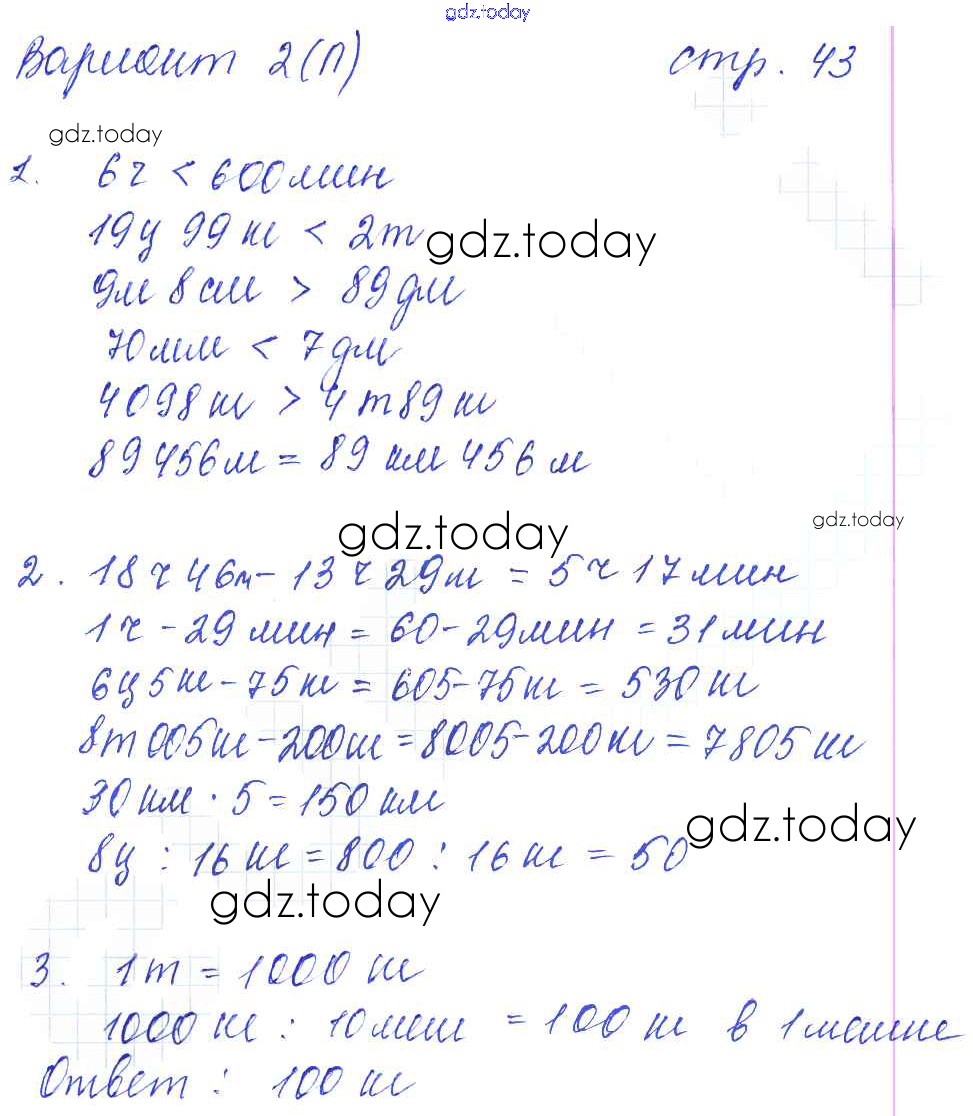 gdz.today
Вариант 2(П) стр. 43
gdz.today
1. 6 ч < 600 мин
19 ц 99 кг < 2 т
gdz.today
9м 8 см > 89 дм
70 мм < 7 дм
4098 кг > 4 т 89 кг
89456 м = 89 км 456 м
gdz.today
gdz.today
2. 18 ч 46м - 13 ч 29м = 5 ч 17 мин
1 ч - 29 мин = 60 - 29 мин = 31 мин
6 ц 5 кг - 75 кг = 605 - 75 кг = 530 кг
8 т 005 кг - 200 кг = 8005 - 200 кг = 7805 кг
30 км · 5 = 150 км
gdz.today
8 ц : 16 кг = 800 : 16 кг = 50
gdz.today
3. 1 т = 1000 кг
1000 кг : 10 меш = 100 кг в 1 мешке
Ответ : 100 кг